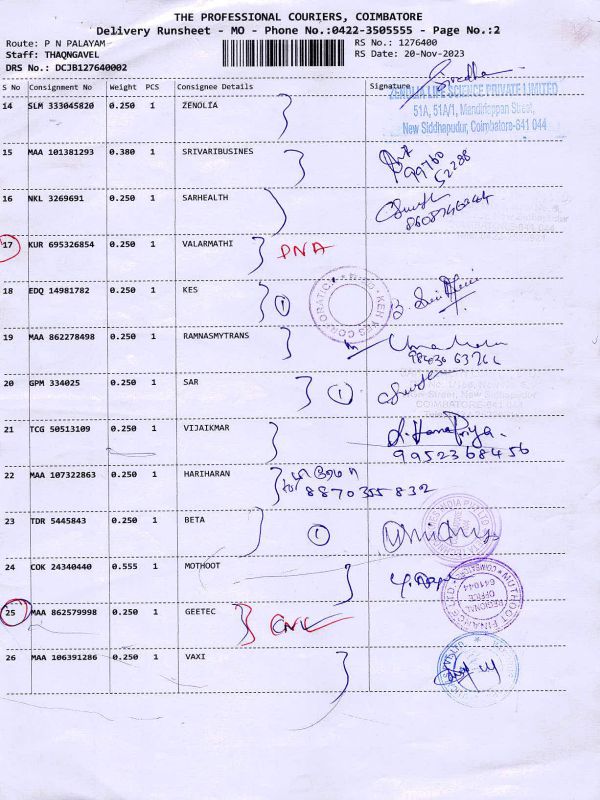 THE PROFESSIONAL COURIERS, COIMBATORE
Delivery Runsheet - MO - Phone No.:0422-3505555 - Page No.:2
Route: P N PALAYAM RS No.: 1276400
Staff: THAQNGAVEL RS Date: 20-Nov-2023
DRS No.: DCJB127640002
S No Consignment No Weight PCS Consignee Details Signature
ZENOLIA LIFE SCIENCE PRIVATE LIMITED
14 SLM 333045820 0.250 1 ZENOLIA
51A, 51A/1, Mandiriappan Street,
New Siddhapudur, Coimbatore-641 044
15 MAA 101381293 0.380 1 SRIVARIBUSINES
99760
52288
16 NKL 3269691 0.250 1 SARHEALTH
17 KUR 695326854 0.250 1 VALARMATHI PNA
18 EDQ 14981782 0.250 1 KES 1
19 MAA 862278498 0.250 1 RAMNASMYTRANS
20 GPM 334025 0.250 1 SAR 1
21 TCG 50513109 0.250 1 VIJAIKMAR
9952368456
22 MAA 107322863 0.250 1 HARIHARAN
8870355832
23 TDR 5445843 0.250 1 BETA 1
24 COK 24340440 0.555 1 MOTHOOT
REGIONAL
OFFICE
641044
25 MAA 862579998 0.250 1 GEETEC
26 MAA 106391286 0.250 1 VAXI